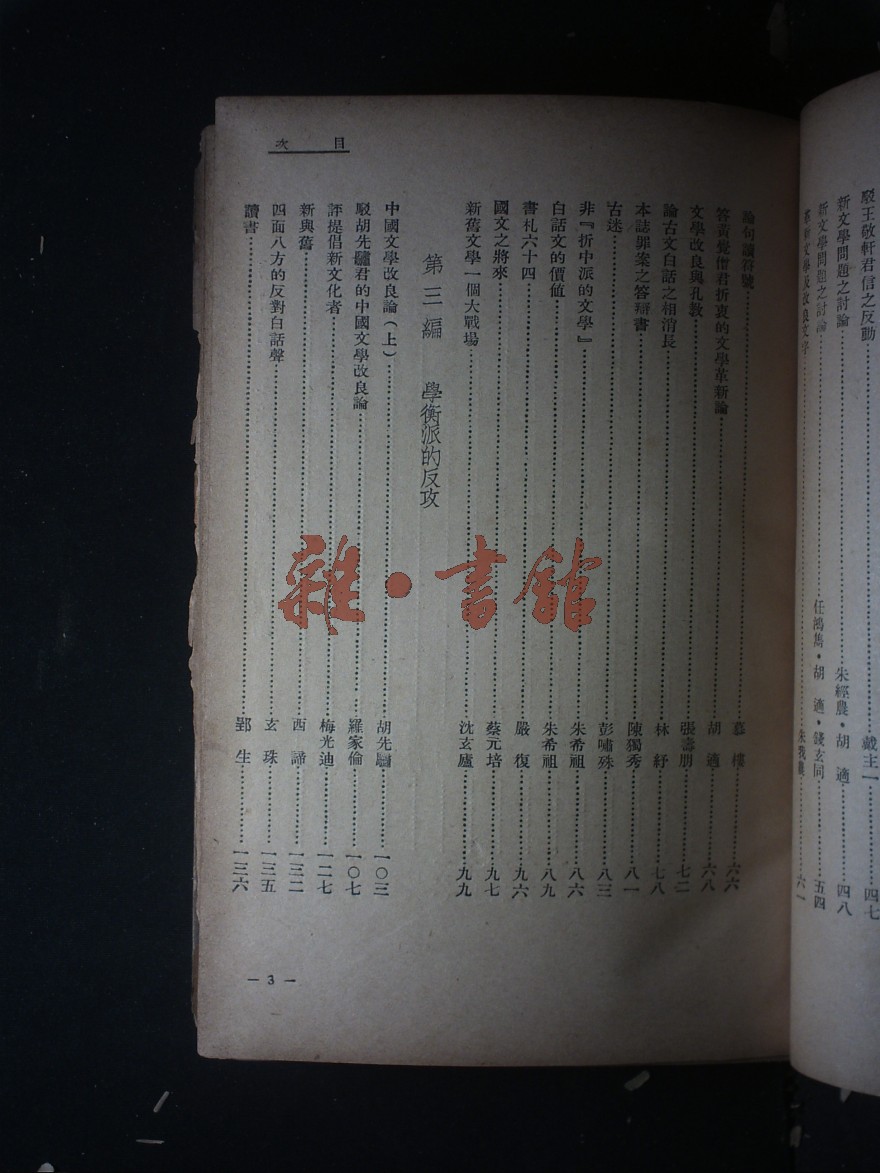 駁王敬軒君信之反動……戴主一……四七
新文學問題之討論……朱經農・胡適……四八
新文學問題之討論……任鴻雋・胡適・錢玄同……五四
革新文學及改良文字……朱我農……六一
目次
論句讀符號……慕樓……六六
答黃覺僧君折衷的文學革新論……胡適……六八
文學改良與孔敎……張壽朋……七二
論古文白話之相消長……林紓……七八
本誌罪案之答辯書……陳獨秀……八一
古迷……彭嘯殊……八三
非『折中派的文學』……朱希祖……八六
白話文的價値……朱希祖……八九
書札六十四……嚴復……九六
國文之將來……蔡元培……九七
新舊文學一個大戰場……沈玄廬……九九
第三編 學衡派的反攻
中國文學改良論(上)……胡先驌……一〇三
駁胡先驌君的中國文學改良論……羅家倫……一〇七
評提倡新文化者……梅光迪……一二七
新與舊……西諦……一三二
四面八方的反對白話聲……玄珠……一三五
讀書……郢生……一三六
— 3 —
雜・書館